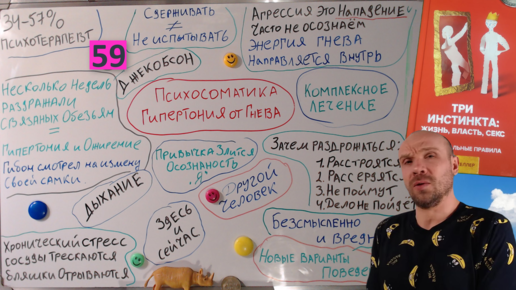 34-57%
ПСИХОТЕРАПЕВТ
59
СДЕРЖИВАТЬ
≠
НЕ ИСПЫТЫВАТЬ
АГРЕССИЯ ЭТО НАПАДЕНИЕ
ЧАСТО НЕ ОСОЗНАЁМ
ЭНЕРГИЯ ГНЕВА
НАПРАВЛЯЕТСЯ ВНУТРЬ
ДЖЕКОБСОН
НЕСКОЛЬКО НЕДЕЛЬ
РАЗДРАЖАЛИ
СВЯЗАНЫХ ОБЕЗЬЯН
=
ГИПЕРТОНИЯ И ОЖИРЕНИЕ
ГИБОН СМОТРЕЛ НА ИЗМЕНУ
СВОЕЙ САМКИ
ПСИХОСОМАТИКА
ГИПЕРТОНИЯ ОТ ГНЕВА
КОМПЛЕКСНОЕ
ЛЕЧЕНИЕ
ПРИВЫЧКА ЗЛИТСЯ
ОСОЗНАНОСТЬ
"Я"
ДРУГОЙ
ЧЕЛОВЕК
ЗАЧЕМ РАЗДРОЖАТЬСЯ:
1. РАССТРОЯТСЯ
2. РАССЕРДЯТСЯ
3. НЕ ПОЙМУТ
4. ДЕЛО НЕ ПОЙДЕТ
ДЫХАНИЕ
ЗДЕСЬ
И
СЕЙЧАС
БЕЗСМЫСЛЕННО
И ВРЕДНО
НОВЫЕ ВАРИАНТЫ
ХРОНИЧЕСКИЙ СТРЕСС
СОСУДЫ ТРЕСКАЮТСЯ
БЛЯШКИ ОТРЫВАЮТСЯ
ТРИ
ИНСТИНКТА:
ЖИЗНЬ, ВЛАСТЬ, СЕКС